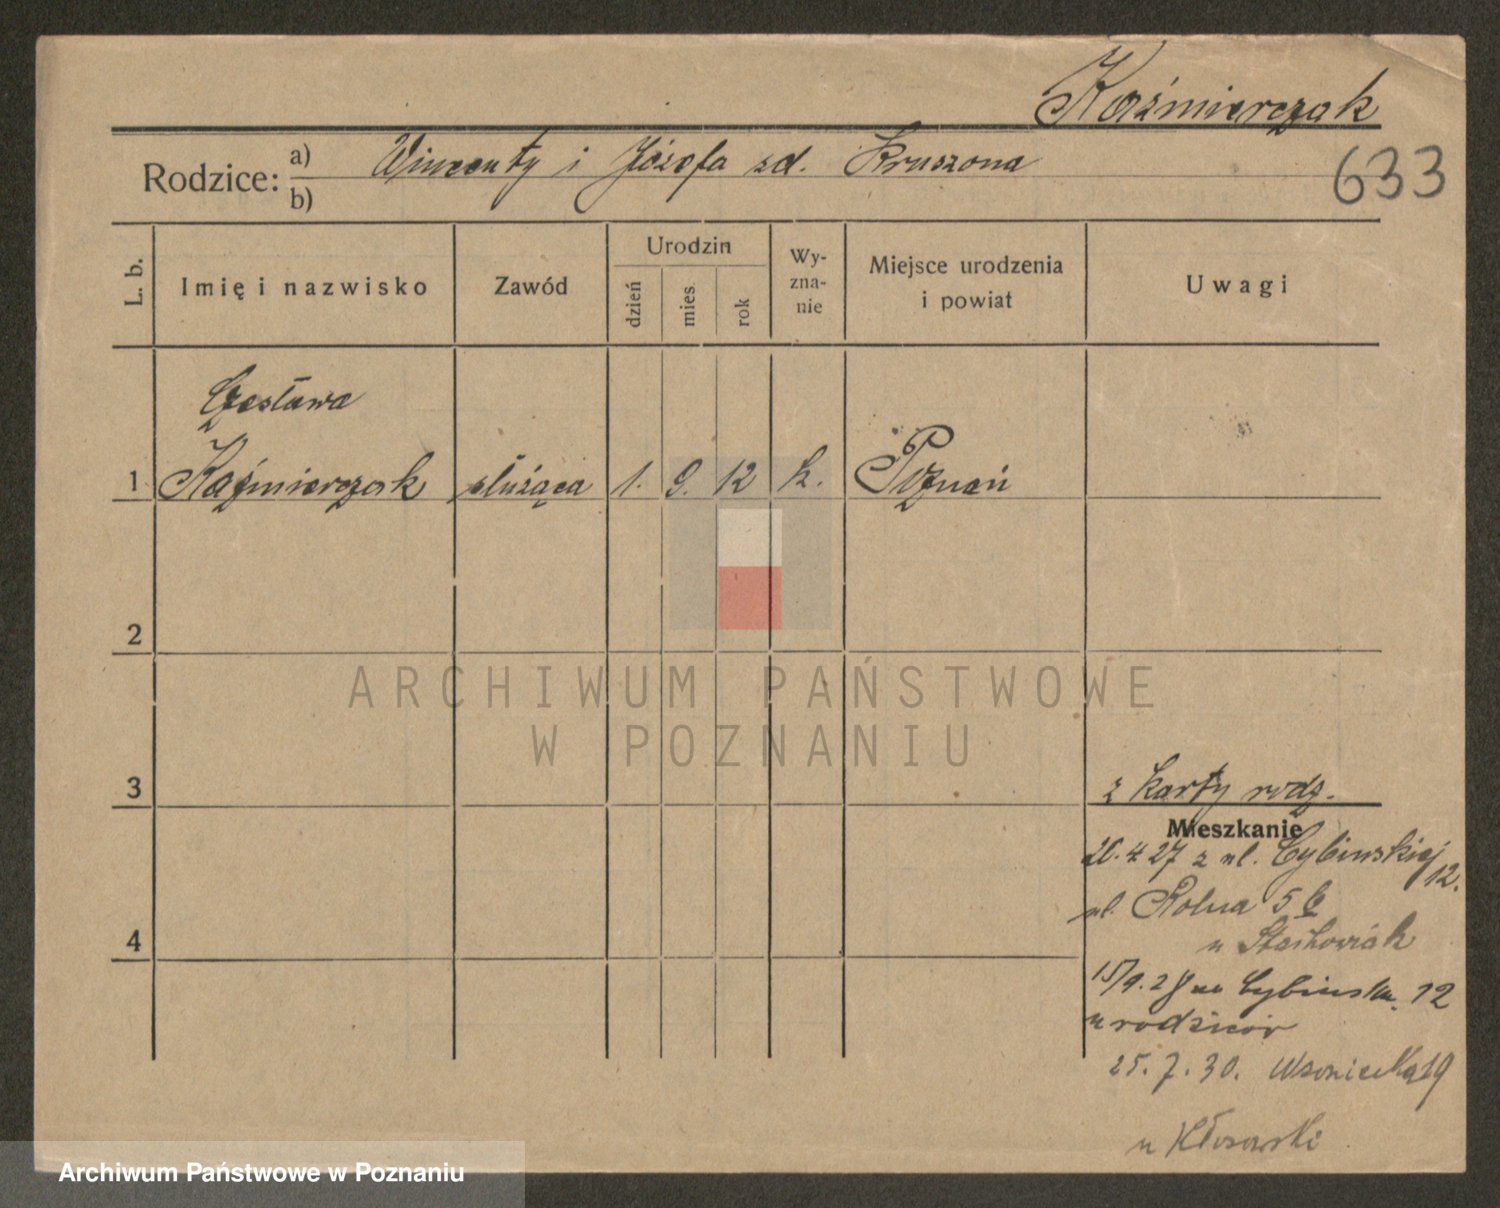 Kaźmierczak
633
Rodzice: a) Wincenty i Józefa zd. Kruszona
b)
L. b. Imię i nazwisko Zawód Urodzin dzień mies. rok Wy-zna-nie Miejsce urodzenia i powiat Uwagi
Czesława
1 Kaźmierczak służąca 1. 9. 12 k. Poznań
2
ARCHIWUM PAŃSTWOWE
W POZNANIU
3
z karty rodz.
Mieszkanie
4 27 z ul. Cybińskiej 12.
ul. Rolna 5
4
u Stachowiak
15/9. 2 Cybińska 12
u rodziców
25. 7. 30. 19
u
Archiwum Państwowe w Poznaniu